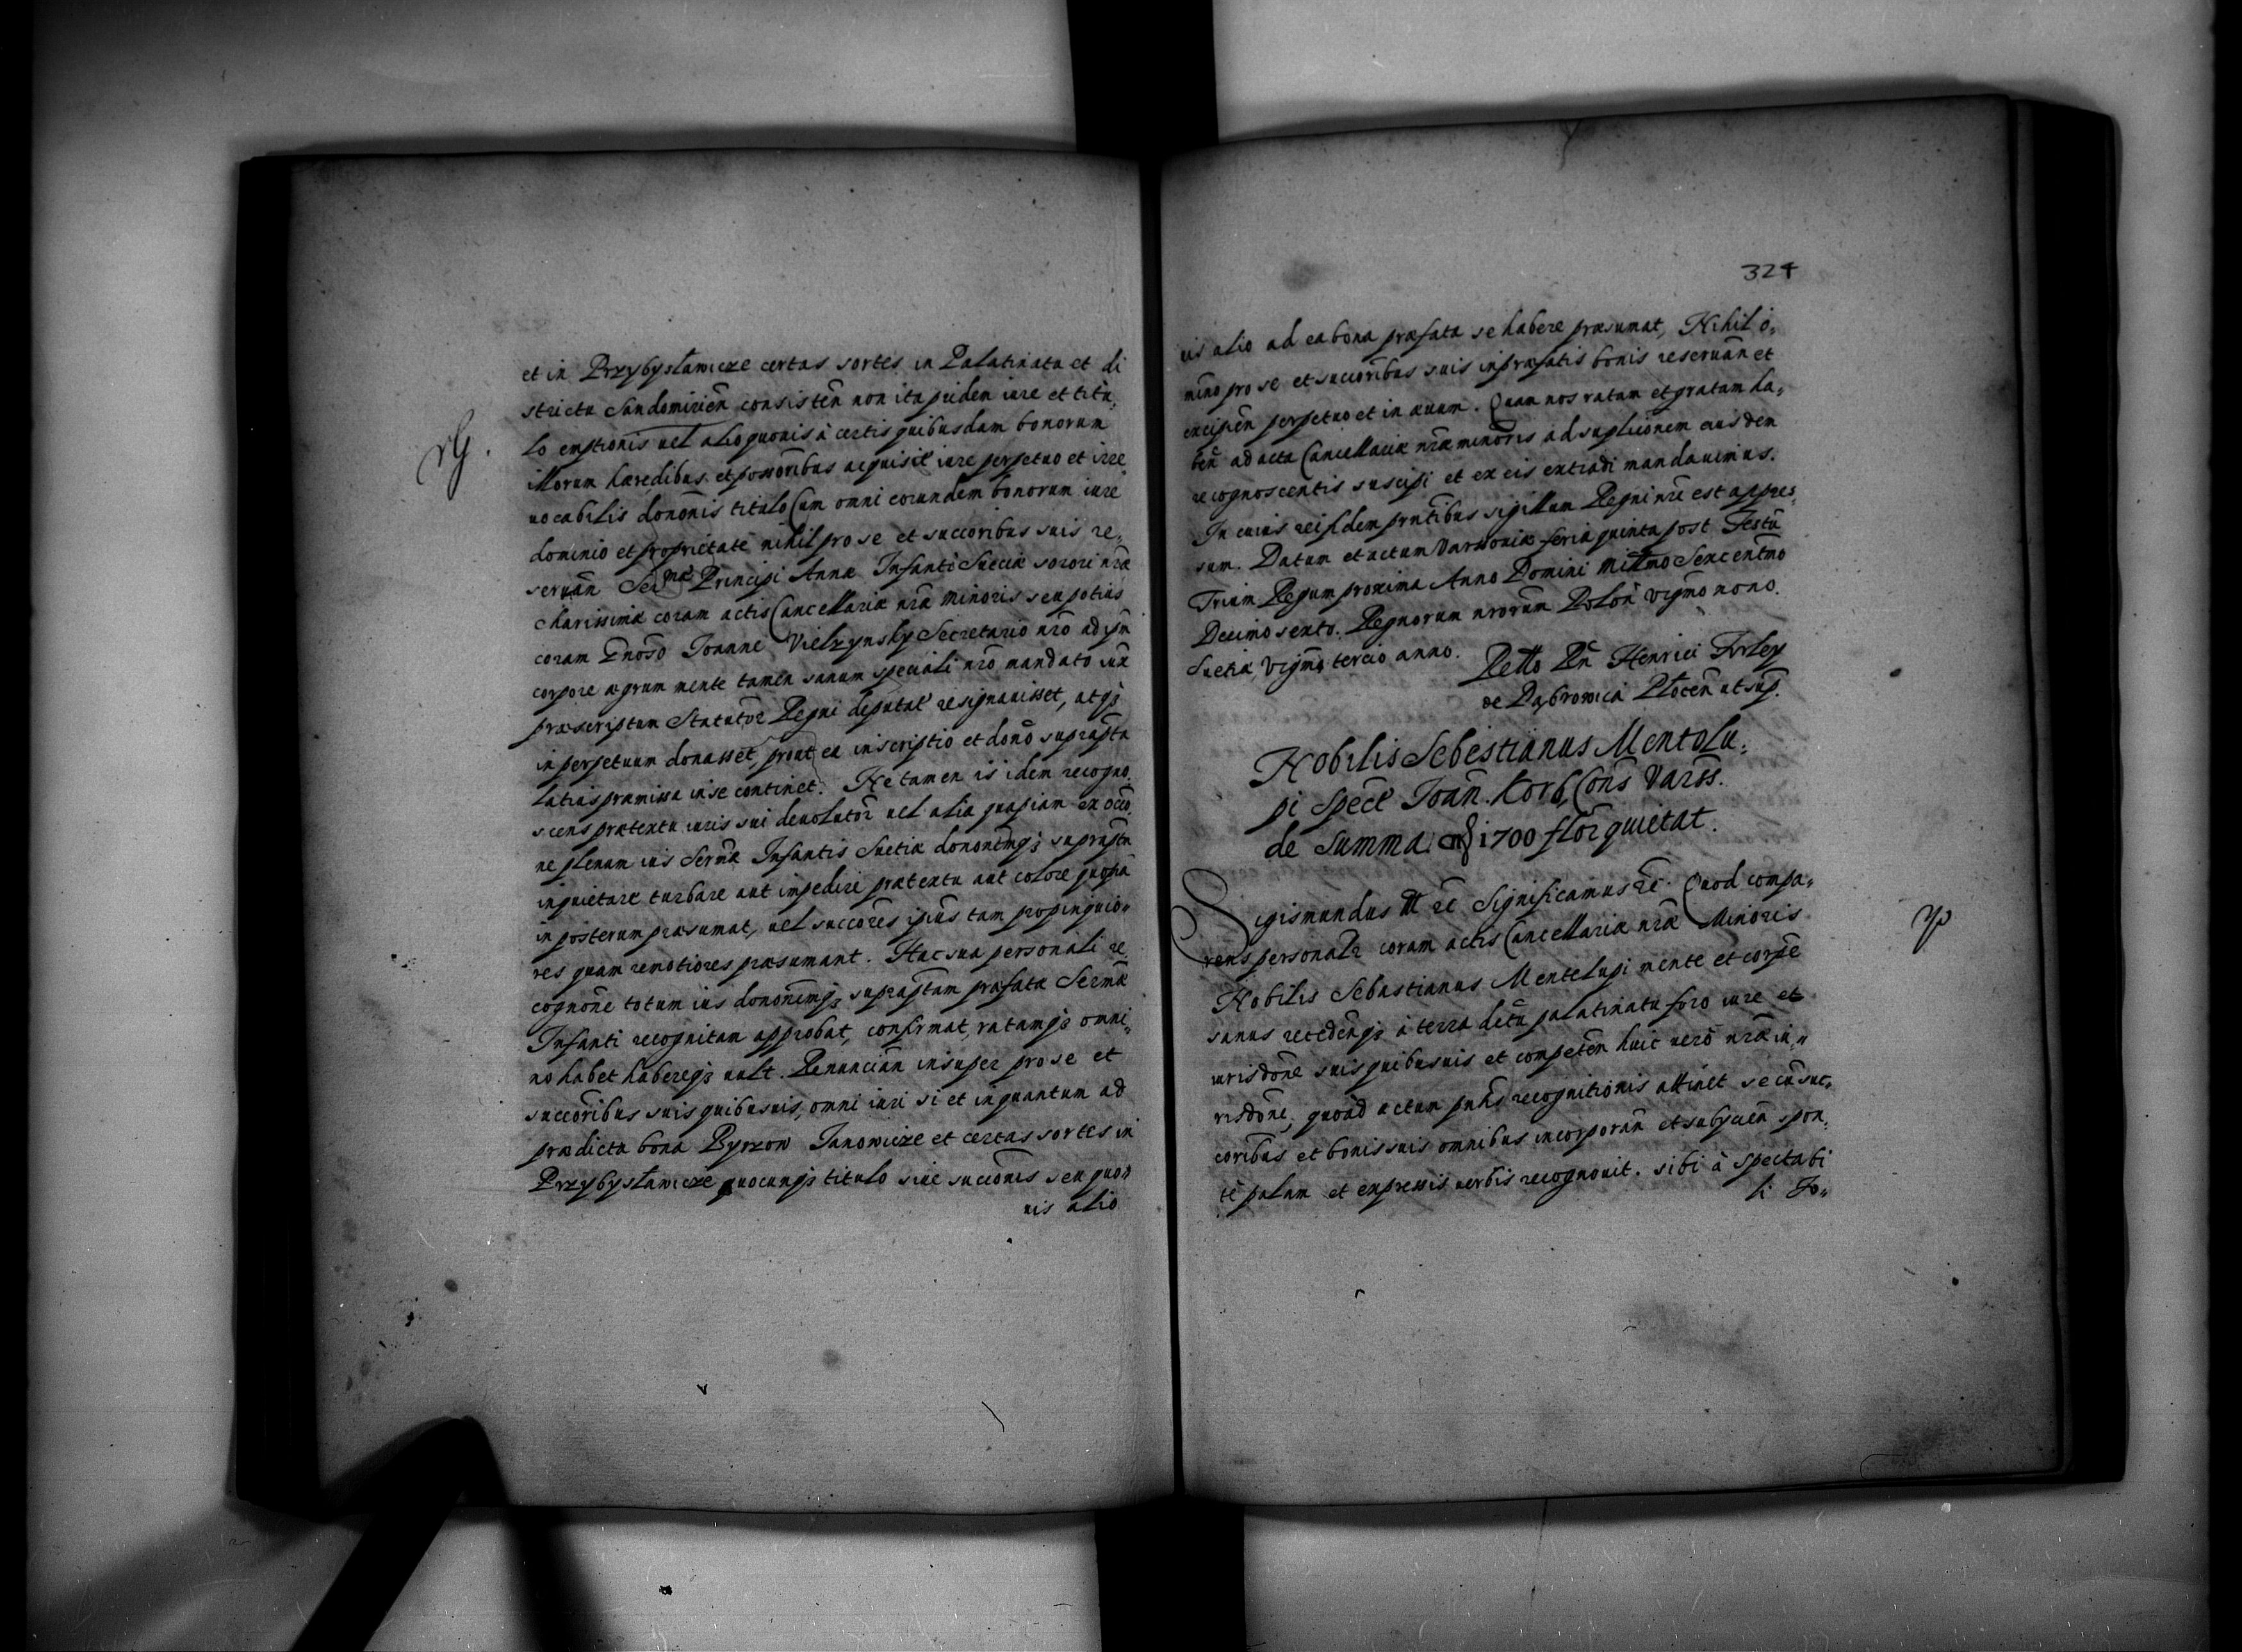 et in Przybysławicze certas sortes in Palatinatu et di
strictu Sandomirien̄ consisten̄ non ita pridem iure et titu„
lo emptionis uel alio quonis à certis quibusdam bonorum
illorum hæredibus et possōribus acquisit̄ iure perpetuo et irre
uocabilis donōnis titulo Cum omni eorundem bonorum iure
dominio et proprietate nihil pro se et succōribus suis re„
seruan̄ Serᵐᵃᵉ Principi Annæ Infanti Sueciæ sorori nrǣ
charissimæ coram actis Cancellariæ nrǣ minoris seu potius
coram Gnōso Ioanne Vielzynsky Secretario nrō ad ipm̄
corpore ægrum mente tamen sanum speciali nrō mandato iux̄
præscriptum Statutor Regni deputat̄ resignauisset, atqȝ
in perpetuum donasset, prout ea inscriptio et donō suprapta
latius præmissa in se continet. Ne tamen is idem recogno„
scens prætextu iuris sui deuolutor uel alia quapiam ex occō„
ne plenum ius Serm̄æ Infantis Suetiæ donōnemqȝ suprapta
inquietare turbare aut impedire prætextu aut colore quopiā
in posterum præsumat, uel succōres ipius tam propinquio„
res quam remotiores præsumant. Hac sua personali re„
cognōne totum ius donōnemqȝ supraptam præfatæ Serm̄æ
Infanti recognitam approbat, confirmat, ratamqȝ omni„
no habet habereqȝ uult. Renuncian̄ insuper pro se et
succōribus suis quibusuis, omni iuri si et inquantum ad
prædicta bona Byrzow Ianowicze et certas sortes in
Przybysławicze quocunqȝ titulo siue succiōnis seu quo„
uis alio
rG.
324
uis alio ad ea bona præfata se habere præsumat, Nihil o„
mino pro se et succōribus suis in præfatis bonis reseruan̄ et
excipien̄ perpetuo et in æuum. Quam nos ratam et gratam ha„
ben̄ ad acta Cancellariæ nrǣ minoris ad supliōnem eiusdem
recognoscentis suscipi et ex eis extradi mandauimus.
In cuius rei fidem prn̄tibus sigillum Regni nrī est appres„
sum. Datum et actum Varsouiæ feria quinta post Festū
Trium Regum proxima Anno Domini Millmō Sexcentmō
Decimo sexto. Regnorum nrōrum Poloniæ vigmō nono.
Suetiæ vigmō tercio anno. Rellō Rn̄ Henrici Firley
de Dąbrowica Płocen̄ ut sup̄.
Nobilis Sebestianus Mentolu„
pi Spect̄ Ioan̄. Korb, Cons̄ Varss̄.
de Summa 1700 flor̄ quietat.
Sigismundus III rē Significamus rē. Quod compa„
rens personalr̄ coram actis Cancellariæ nrǣ Minoris
Nobilis Sebastianus Mentelupi mente et corpē
sanus recedēnqȝ à terra distū palatinatu foro iure et
iurisdōne suis quibusuis et competen̄ huic uerō nrǣ iu„
risdōne, quoad actum pnt̄is recognitionis attinet se cū suc„
coribus et bonis suis omnibus incorporan̄ et subijcien̄ spon„
tē palam et expressis uerbis recognouit. sibi à spectabi
li Io„